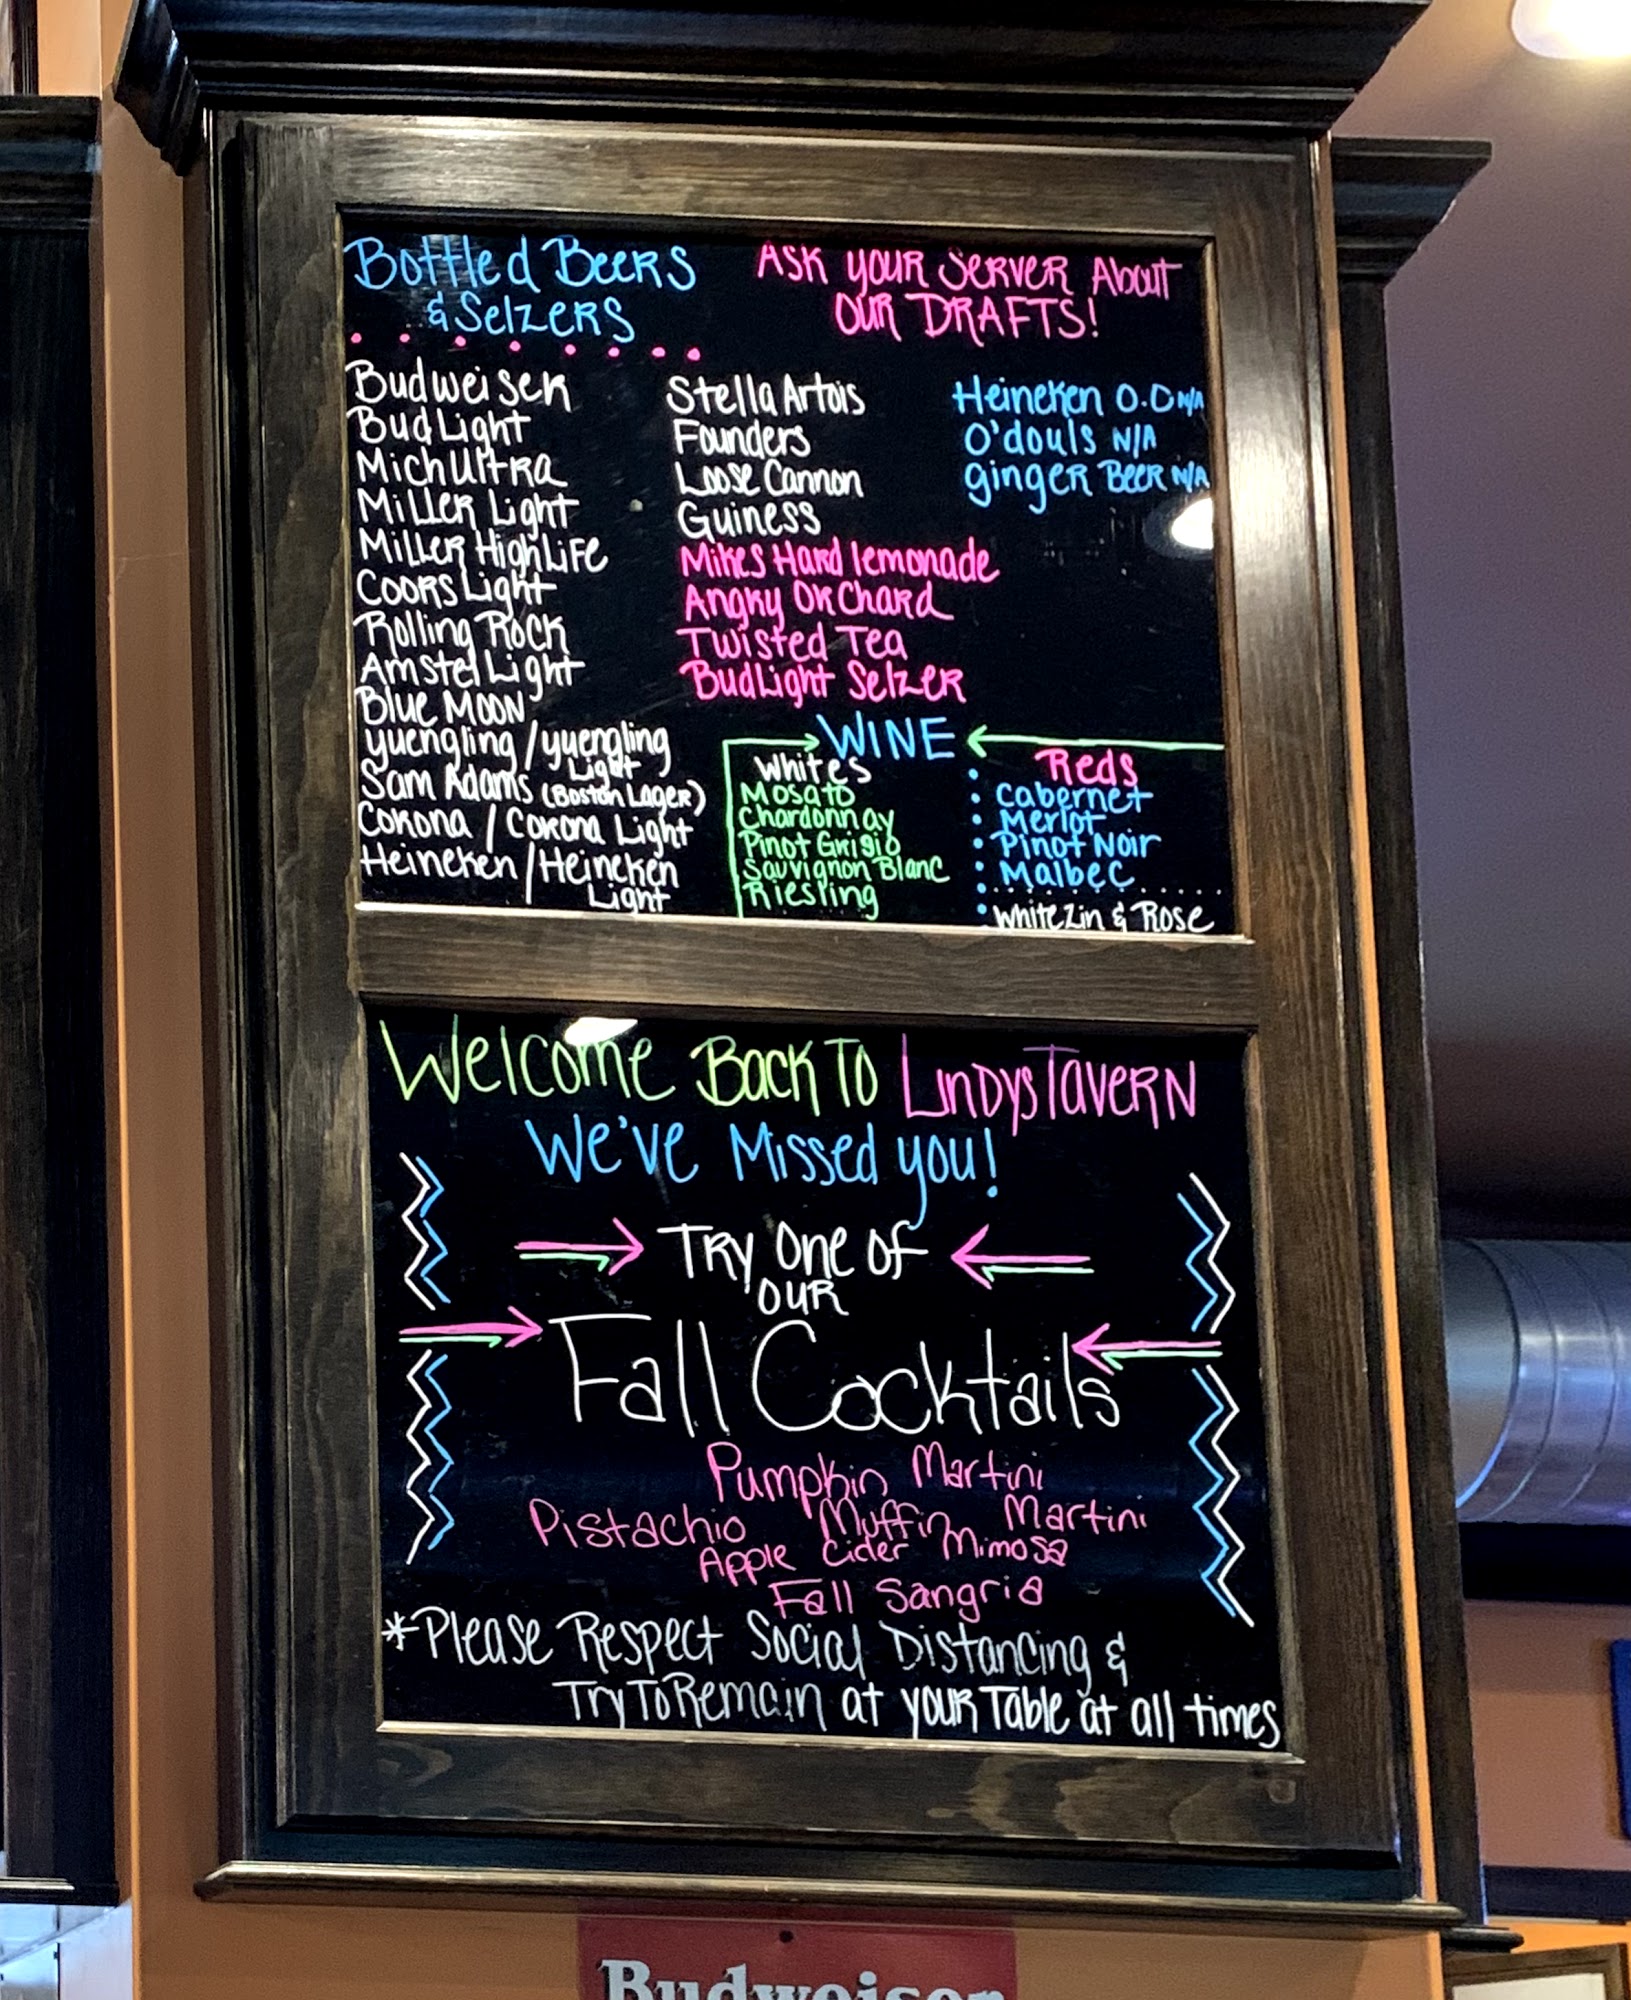 Bottled Beers
& Selzers
Ask your Server About
our DRAFTS!
Budweiser
Bud Light
Mich Ultra
Miller Light
Miller High Life
Coors Light
Rolling Rock
Amstel Light
Blue Moon
yuengling / yuengling
Light
Sam Adams (Boston Lager)
Corona / Corona Light
Heineken / Heineken
Light
Stella Artois
Founders
Loose Cannon
Guiness
Mikes Hard lemonade
Angry Orchard
Twisted Tea
Bud Light Selzer
Heineken 0.0 N/A
O'douls N/A
ginger Beer N/A
WINE
Whites
Mosato
Chardonnay
Pinot Grigio
Sauvignon Blanc
Riesling
Reds
Cabernet
Merlot
Pinot Noir
Malbec
White Zin & Rose
Welcome Back To Lindys Tavern
We've Missed you!
Try One of
our
Fall Cocktails
Pumpkin Martini
Pistachio Muffin Martini
Apple Cider Mimosa
Fall Sangria
*Please Respect Social Distancing &
Try To Remain at your Table at all times
Budweiser